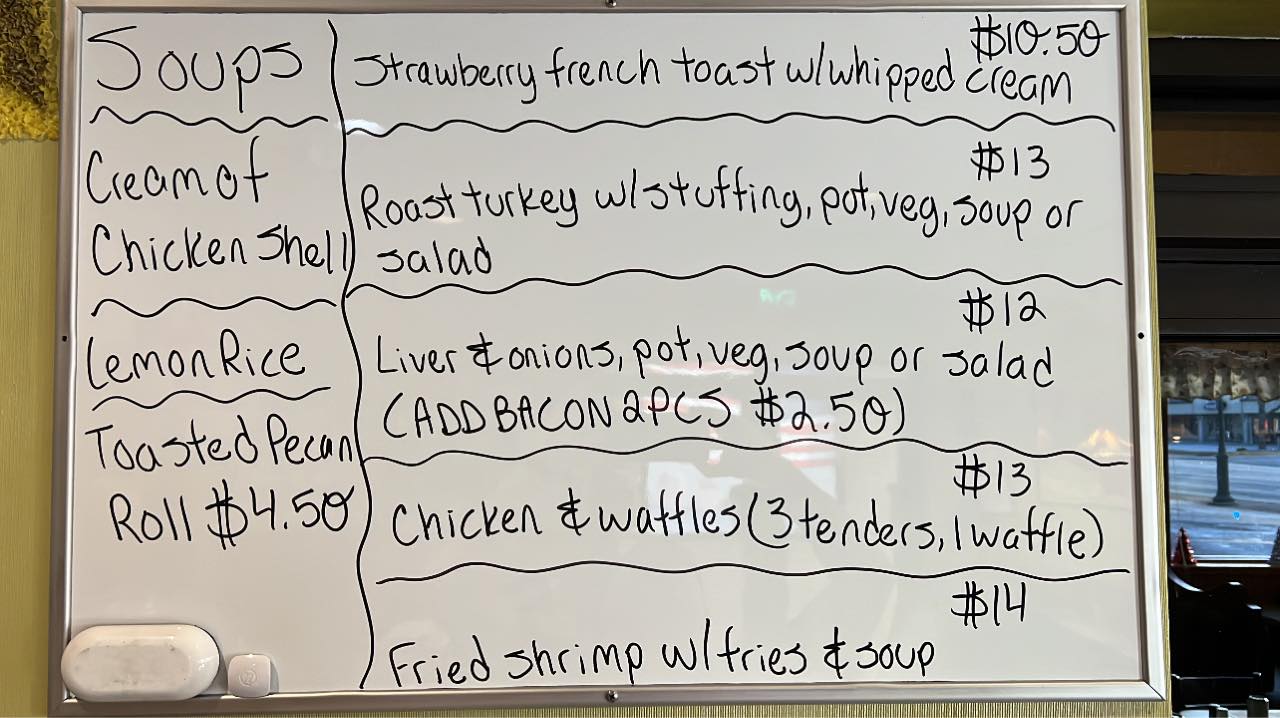 Soups
Cream of
Chicken Shell
Lemon Rice
Toasted Pecan
Roll $4.50
$10.50
Strawberry french toast w/whipped cream
$13
Roast turkey w/stuffing, pot, veg, soup or
salad
$12
Liver & onions, pot, veg, soup or salad
(ADD BACON 2PCS $2.50)
$13
Chicken & waffles (3 tenders, 1 waffle)
$14
Fried shrimp w/fries & soup